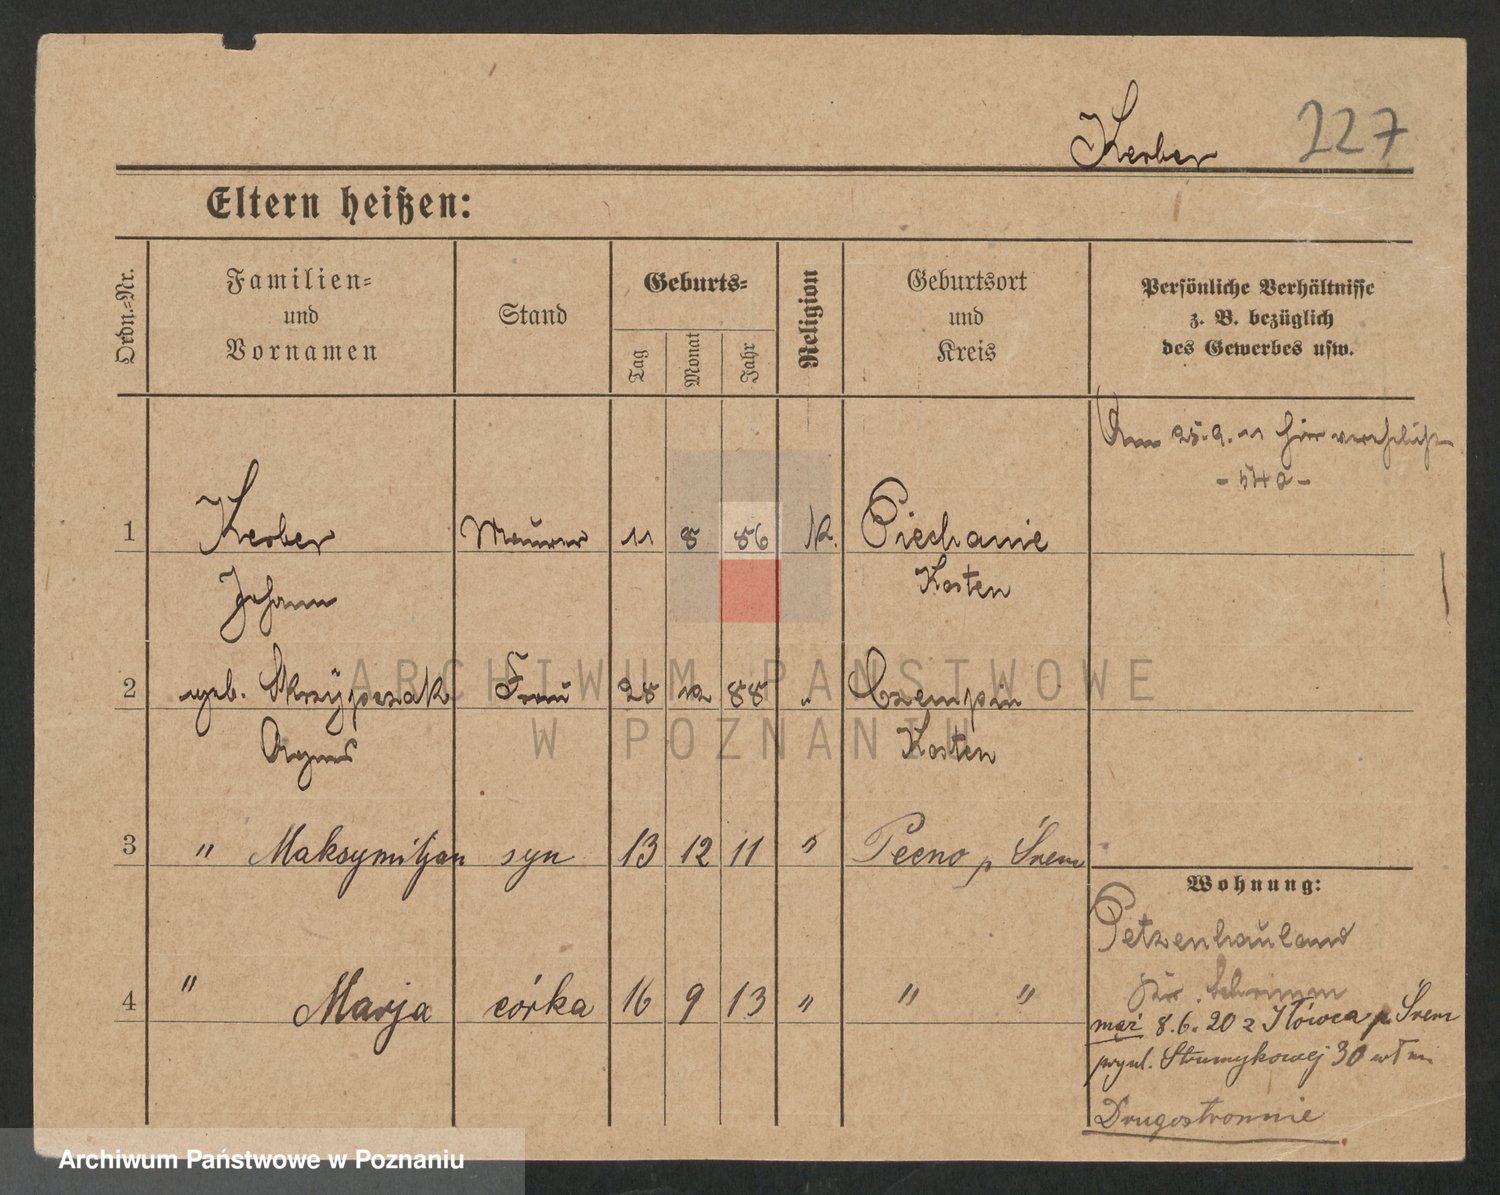 Kerber 227
Eltern heißen:
Ordn.-Nr.
Familien-
und
Vornamen
Stand
Geburts-
Tag
Monat
Jahr
Religion
Geburtsort
und
Kreis
Persönliche Verhältnisse
z. B. bezüglich
des Gewerbes usw.
Am 25.9.11 hier verehelicht
1 Kerber Maurer 11 8 86 k. Piechanie
Johann Kosten
2 geb. Skrzypczak Frau 28 12 88 " Czempin
Agnes Kosten
3 " Maksymiljan syn 13 12 11 " Pecno p Śrem
Wohnung:
Petzenhauland
Kr. Schrimm
4 " Marja córka 16 9 13 " " "
mąż 8.6.20 z Iłówca p. Śrem
przyul. Strumykowej 30 wł m
Drugostronnie
ARCHIWUM PAŃSTWOWE
W POZNANIU
Archiwum Państwowe w Poznaniu